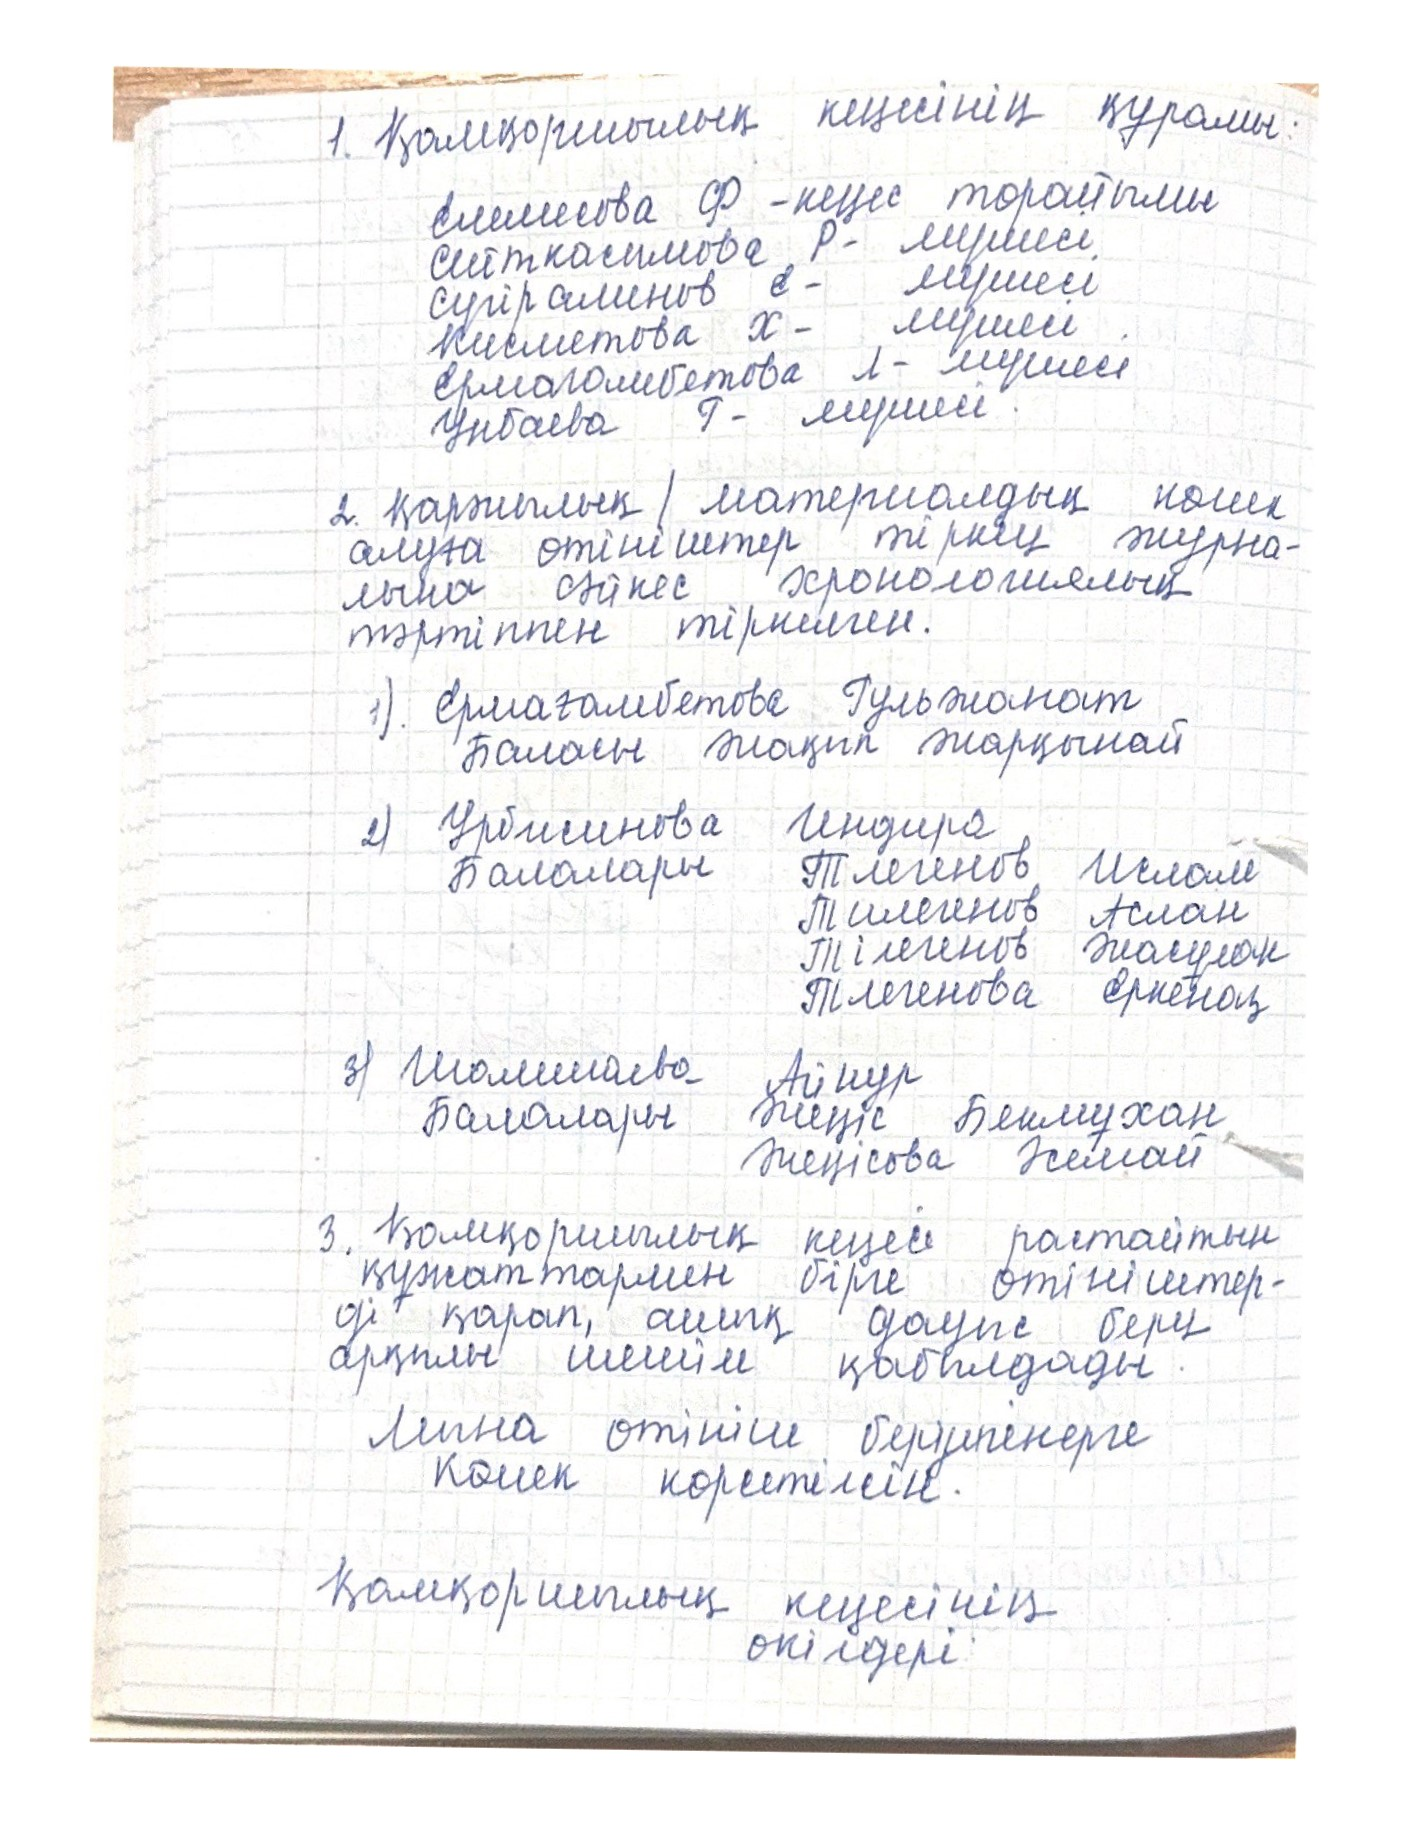 1. Қамқоршылық кеңесінің құрамы:
Елемесова Ф - кеңес төрайымы
Сейткасымова Р - мүшесі
Сүгіралинов Е - мүшесі
Кисметова Х - мүшесі
Ермагамбетова Л - мүшесі
Унбаева Г - мүшесі
2. Қаржылық / материалдық көмек
алуға өтініштер тіркеу журна-
лына сәйкес хронологиялық
тәртіппен тіркелген.
1). Ермағамбетова Гульжанат
Баласы Жақып Жарқынай
2) Урбисинова Индира
Балалары Тлегенов Ислам
Тилегенов Аслан
Тілегенов Жасұлан
Тлегенова Еркеназ
3) Шалшаева Айнур
Балалары Жеңіс Бекмұхан
Жеңісова Хемай
3. Қамқоршылық кеңесі растайтын
құжаттармен бірге өтініштер-
ді қарап, ашық дауыс беру
арқылы шешім қабылдады.
Мына өтініш берушенерге
Көмек көрсетілсін.
Қамқоршылық кеңесінің
өкілдері: